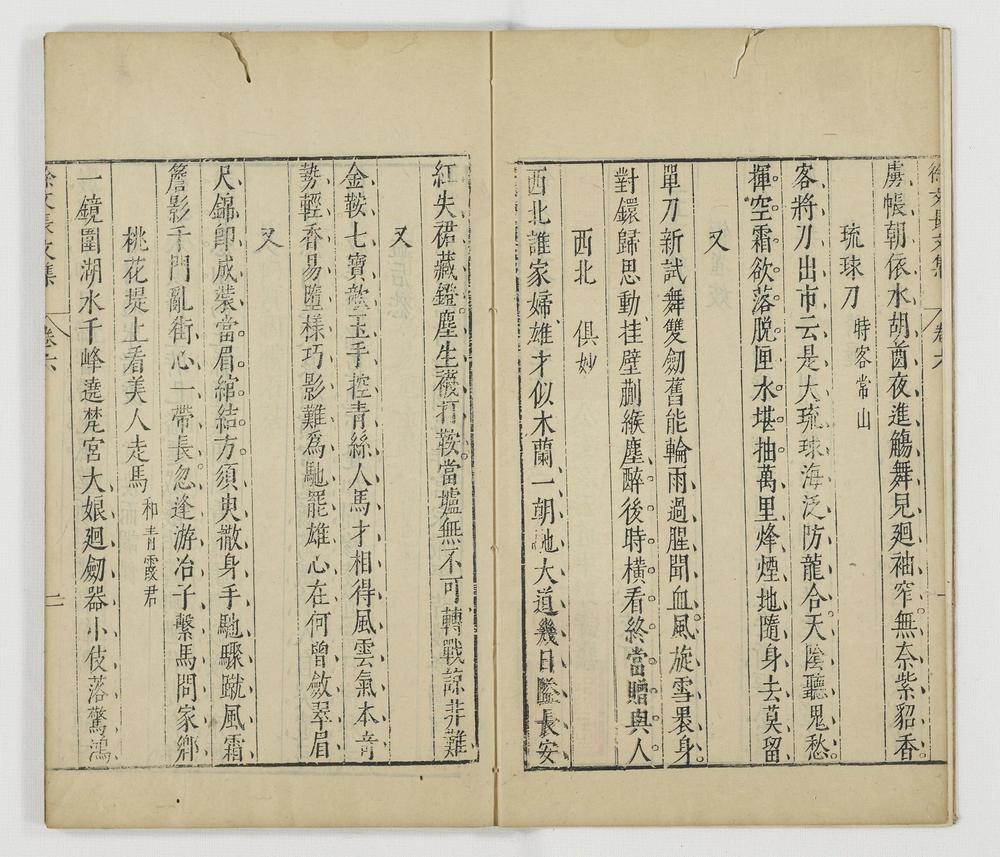 徐文長文集 卷六 一
虜帳朝依水胡酋夜進觴舞兒廻袖窄無奈紫貂香
琉球刀 時客常山
客將刀出市云是大琉球海泛防龍合天陰聽鬼愁
揮空霜欲落脫匣水堪抽萬里烽煙地隨身去莫留
又
單刀新試舞雙劒舊能輪雨過腥聞血風旋雪裹身
對鐶歸思動挂壁蒯緱塵醉後時橫看終當贈與人
西北 俱妙
西北誰家婦雄才似木蘭一朝馳大道幾日隘長安
紅失裙藏鐙塵生襪打鞍當壚無不可轉戰諒非難
又
金鞍七寶歕玉手控青絲人馬才相得風雲氣本奇
勢輕香易墮樣巧影難為馳罷雄心在何曾斂翠眉
又
尺錦即成裝當眉綰結方須臾撒身手馳驟蹴風霜
簷影千門亂街心一帶長忽逢游冶子繫馬問家鄉
桃花堤上看美人走馬 和青霞君
一鏡圍湖水千峰遶梵宮大娘廻劒器小伎落驚鴻
徐文長文集 卷六 二